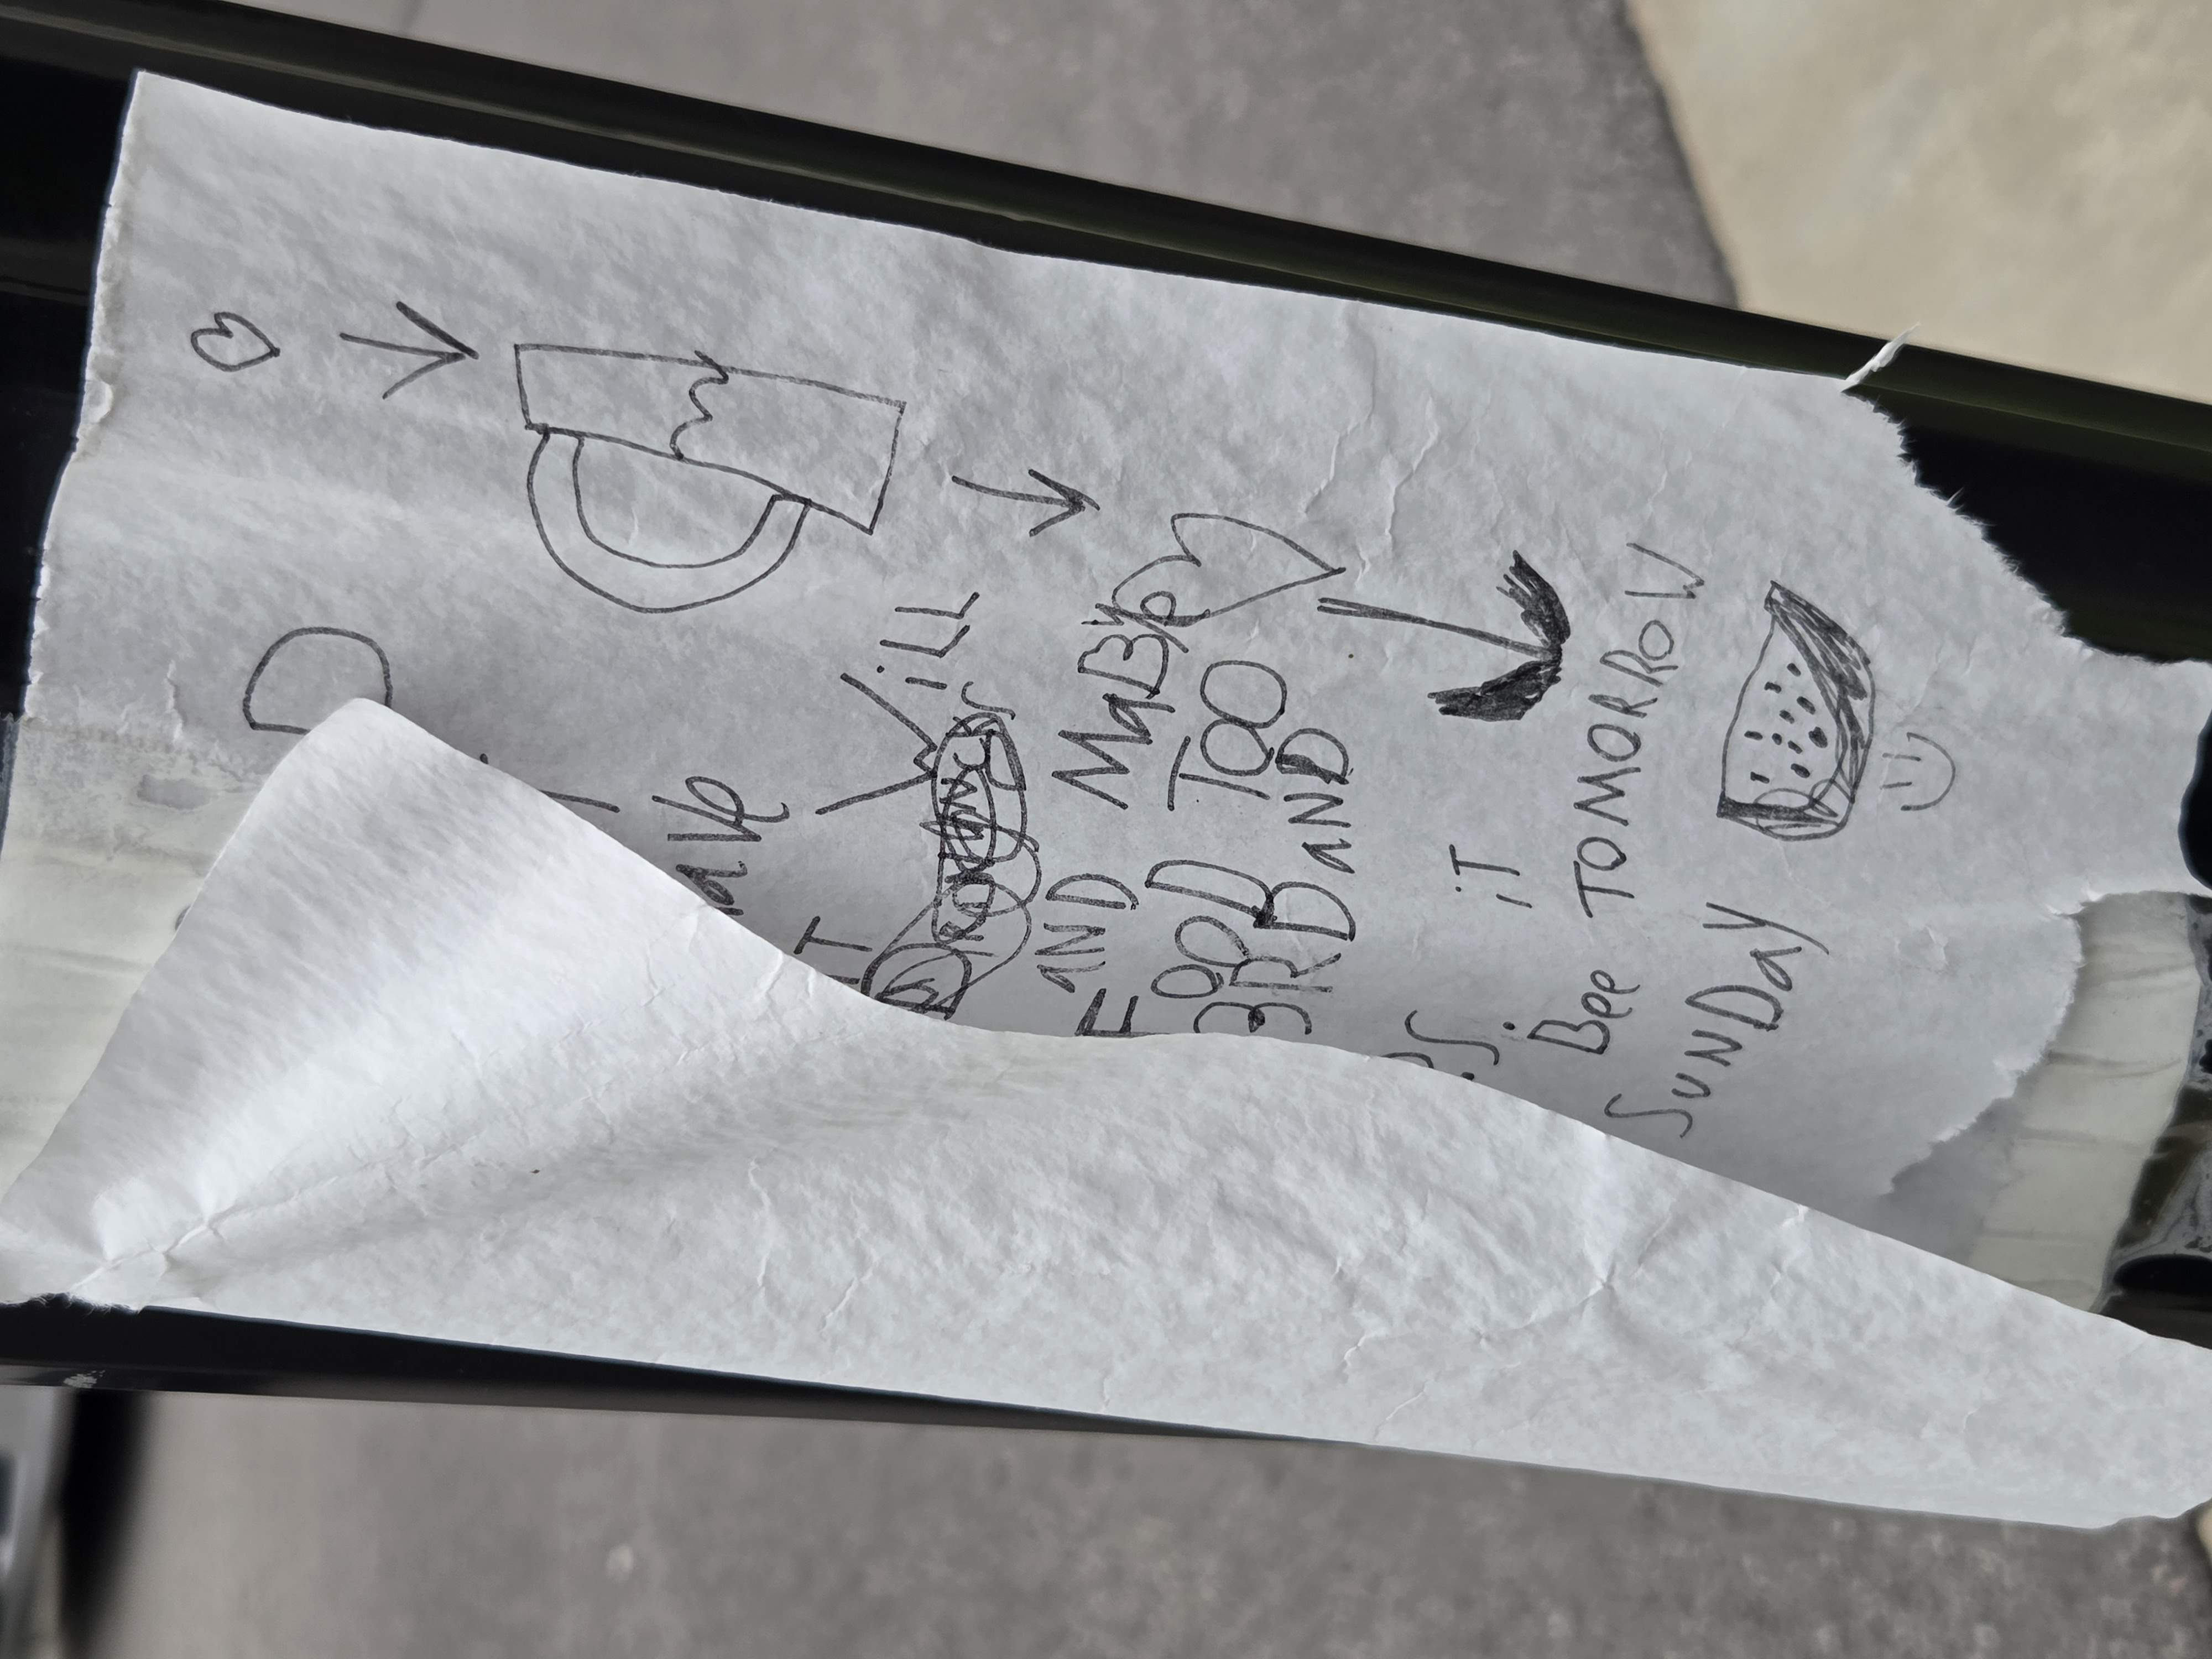 ave
T Will
AND MaBye
FOOD TOO
3RD aND
PS. iT
Bee TOMORROW
SUNDay